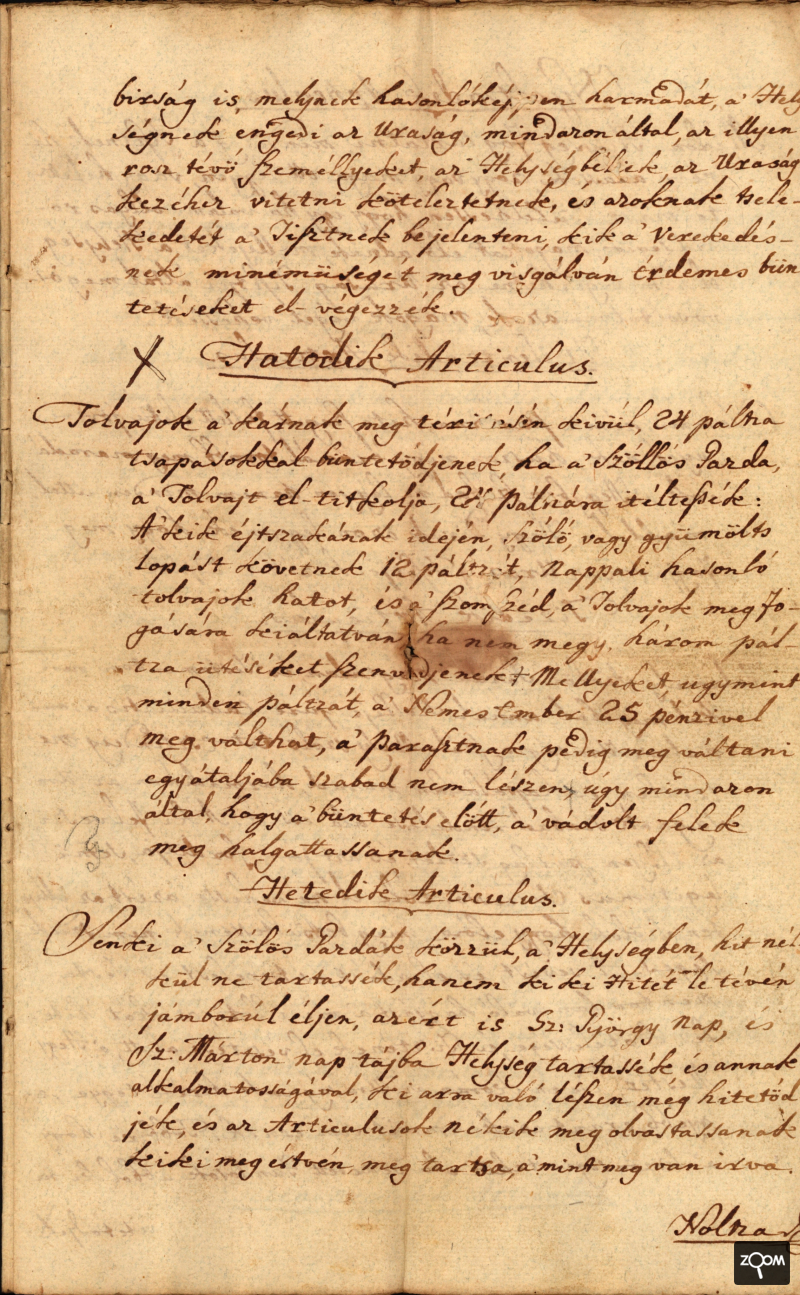 birság is, melynek hasonlóképpen harmadát, a' Hely
ségnek engedi az Uraság, mindazonáltal, az illyen
rosz tévő személlyeket, az Helységbéliek, az Uraság
kezéhez vitetni köteleztetnek, és azoknak tsele-
kedetét a' Tisztnek bejelenteni, kik a' verekedés-
nek minémüségét meg visgálván érdemes bün
tetéseket el-végezzék.
X Hatodik Articulus.
Tolvajok a' kárnak meg térítésén kivül, 24 páltza
tsapásokkal büntetődjenek, ha a' Szöllős Gazda,
a' Tolvajt el-titkolja, páltzára itéltessék:
A' kik éjtszakának idején, szölö, vagy gyümölts
lopást követnek 12 páltzát, Nappali hasonló
tolvajok hatot, és a' szomszéd, a' Tolvajok meg fo-
gására kiáltatván ha nem megy, három pál-
tza ütéséket szenvedjenek Mellyeket, ugymint
minden páltzát, a' Nemes Ember 25 pénzivel
meg válthat, a' parasztnak pedig meg váltani
egyátaljába szabad nem lészen, úgy mindazon
által, hogy a' büntetés elött, a' vádolt felek
meg halgattassanak.
Hetedik Articulus.
Senki a' Szölös Gazdák közzül, a' Helységben, hit nél-
kül ne tartassék, hanem kiki Hitét le tévén
jámborúl éljen, azért is Sz: György nap, és
Sz: Márton nap tájba Helység tartassék és annak
alkalmatosságával, ki arra való lészen még hitetöd
jék, és az Articulusok nékik meg olvastassanak
kiki meg értvén, meg tartsa, a' mint meg van irva.
ZOOM